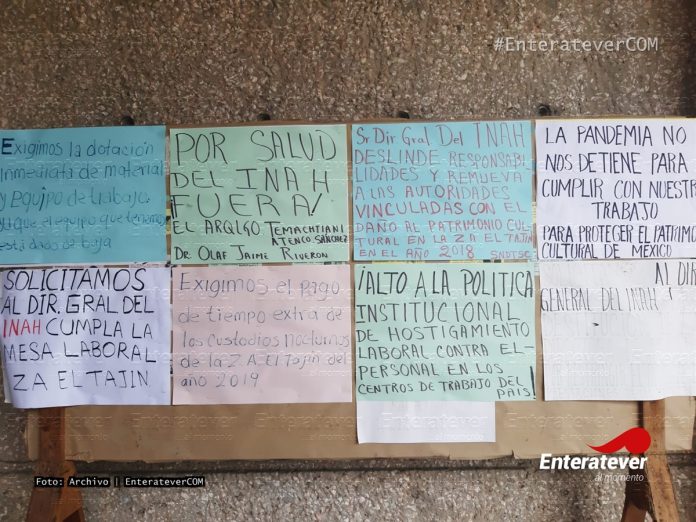 #EnterateverCOM
Exigimos la dotación
inmediata de material
y equipo de trabajo.
que el equipo que tenemos
está dado de baja
POR SALUD
DEL INAH
FUERA!
EL ARQLGO TEMACHTIANI
ATENCO SÁNCHEZ
DR. OLAF JAIME RIVERON
Sr Dir Gral Del INAH
DESLINDE RESPONSABI-
LIDADES Y REMUEVA
A LAS AUTORIDADES
VINCULADAS CON EL
DAÑO AL PATRIMONIO CUL-
TURAL EN LA ZA EL TAJIN
EN EL AÑO 2018 SNDTSC
LA PANDEMIA NO
NOS DETIENE PARA
CUMPLIR CON NUESTR
TRABAJO
PARA PROTEGER EL PATRIMO
CULTURAL DE MEXICO
SOLICITAMOS
AL DIR. GRAL DEL
INAH CUMPLA LA
MESA LABORAL
ZA EL TAJIN
Exigimos el pago
de tiempo extra de
los custodios nocturnos
de la Z.A El Tajín del
año 2019
¡ALTO A LA POLITICA
INSTITUCIONAL
DE HOSTIGAMIENTO
LABORAL CONTRA EL
PERSONAL EN LOS
CENTROS DE TRABAJO DEL
PAIS!
AL DIR
GENERAL DEL INAH
Enteratever
al momento
Foto: Archivo | EnterateverCOM